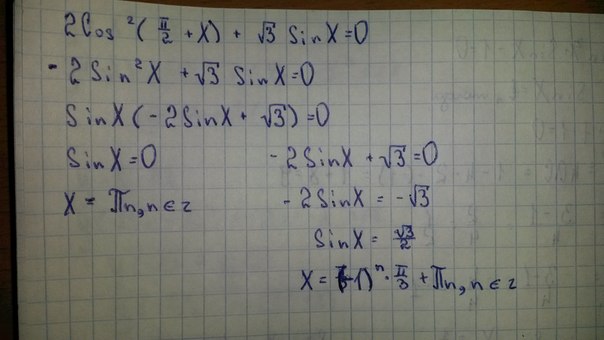 2Cos²(π/2 + X) + √3 SinX=0
- 2Sin²X + √3 SinX=0
SinX(-2SinX + √3)=0
SinX=0
X = Πn, n ∈ z
-2SinX + √3=0
-2SinX = -√3
SinX = √3/2
X = (-1)ⁿ · π/3 + Πn, n ∈ z